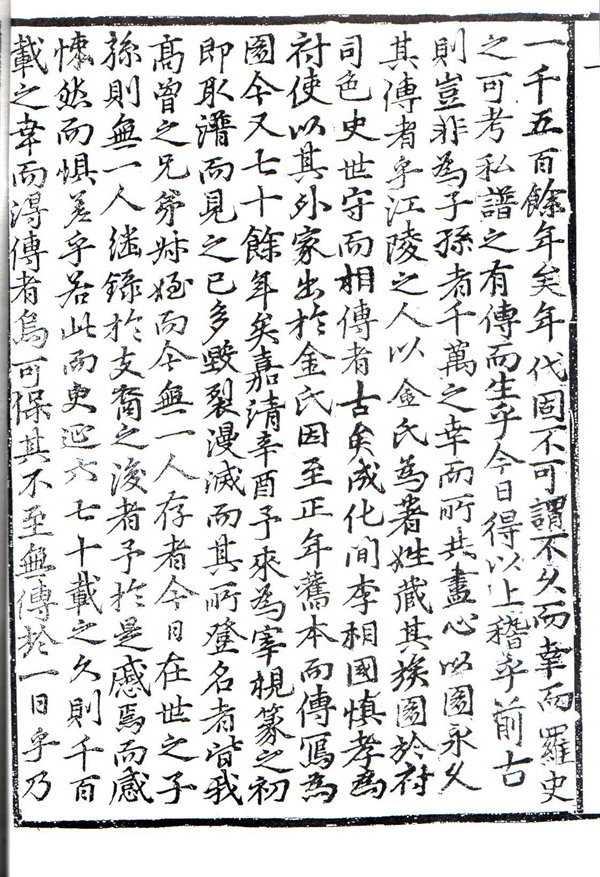 一千五百餘年矣年代固不可謂不久而幸而羅史
之可考私譜之有傳而生乎今日得以上稽乎前古
則豈非為子孫者千萬之幸而所共盡心以圖永久
其傳者乎江陵之人以金氏為著姓藏其族圖於府
司色吏世守而相傳者古矣成化間李相國愼孝為
府使以其外家出於金氏因至正年舊本而傳寫為
圖今又七十餘年矣嘉清辛酉予來為宰視篆之初
即取譜而見之已多毀裂漫滅而其所登名者皆我
高曾之兄弟姊姪而今無一人存者今日在世之子
孫則無一人継錄於支裔之後者予於是感焉而感
愾然而惧差乎若此而更延六七十載之久則千百
載之幸而得傳者烏可保其不至無傳於一日乎乃